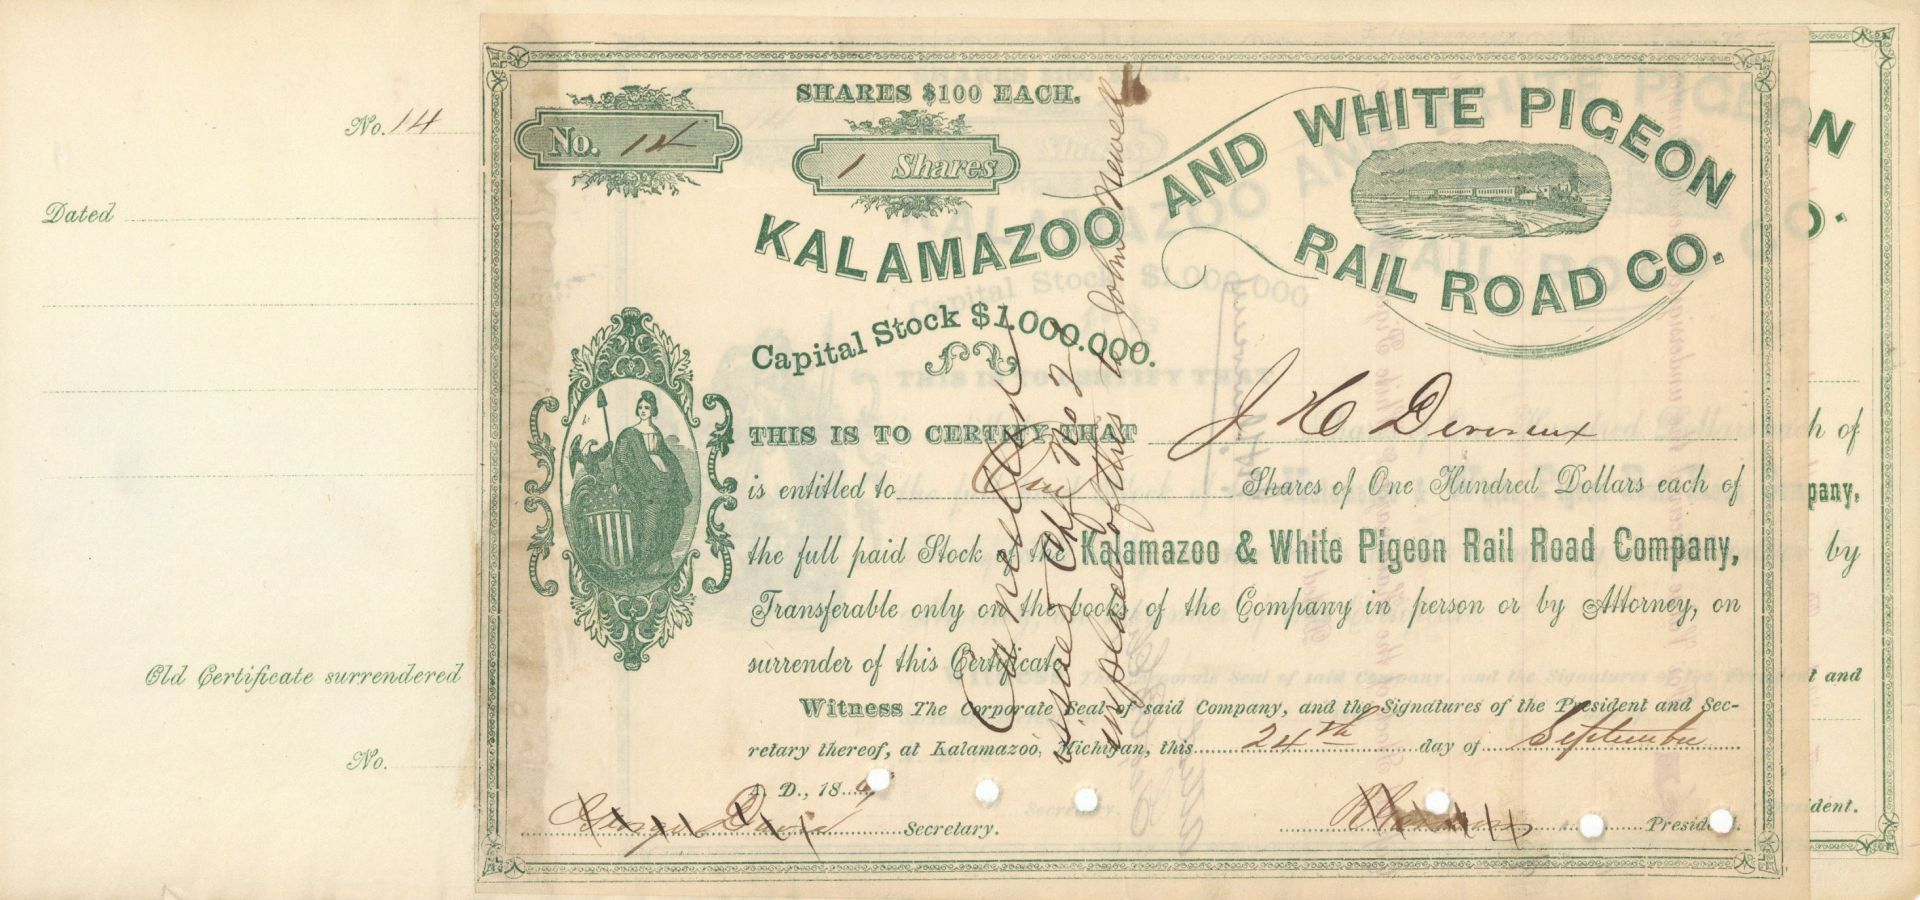 No. 14
Dated
Old Certificate surrendered
No.
SHARES $100 EACH.
No. 14
1 Shares
KALAMAZOO AND WHITE PIGEON
RAIL ROAD CO.
Capital Stock $1.000.000.
THIS IS TO CERTIFY THAT J H Devereux
is entitled to One Shares of One Hundred Dollars each of
the full paid Stock of the Kalamazoo & White Pigeon Rail Road Company,
Transferable only on the books of the Company in person or by Attorney, on
surrender of this Certificate.
Witness The Corporate Seal of said Company, and the Signatures of the President and Sec-
retary thereof, at Kalamazoo, Michigan, this 24th day of September
A. D., 18
Secretary.
President.
Cancelled and
issued Ctf no 2
in place of this to John Newell
N
O.
h of
pany,
by
t and
ident.